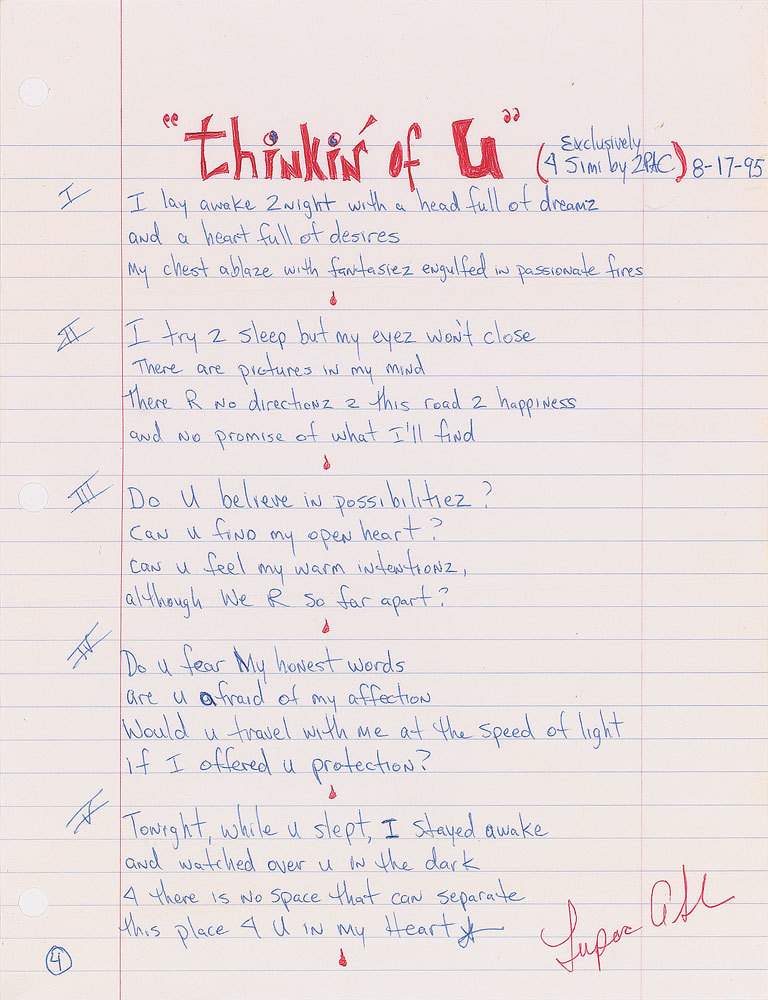 "thinkin' of U"
(Exclusively
4 Simi by 2PAC) 8-17-95
I
I lay awake 2night with a head full of dreamz
and a heart full of desires
My chest ablaze with fantasiez engulfed in passionate fires
II
I try 2 sleep but my eyez won't close
There are pictures in my mind
there R no directionz 2 this road 2 happiness
and no promise of what I'll find
III
Do U believe in possibilitiez?
Can u find my open heart?
can u feel my warm intentionz,
although We R so far apart?
IV
Do u fear My honest words
are u afraid of my affection
Would u travel with me at the speed of light
if I offered u protection?
V
Tonight, while u slept, I stayed awake
and watched over u in the dark
4 there is no space that can separate
this place 4 U in my Heart
4